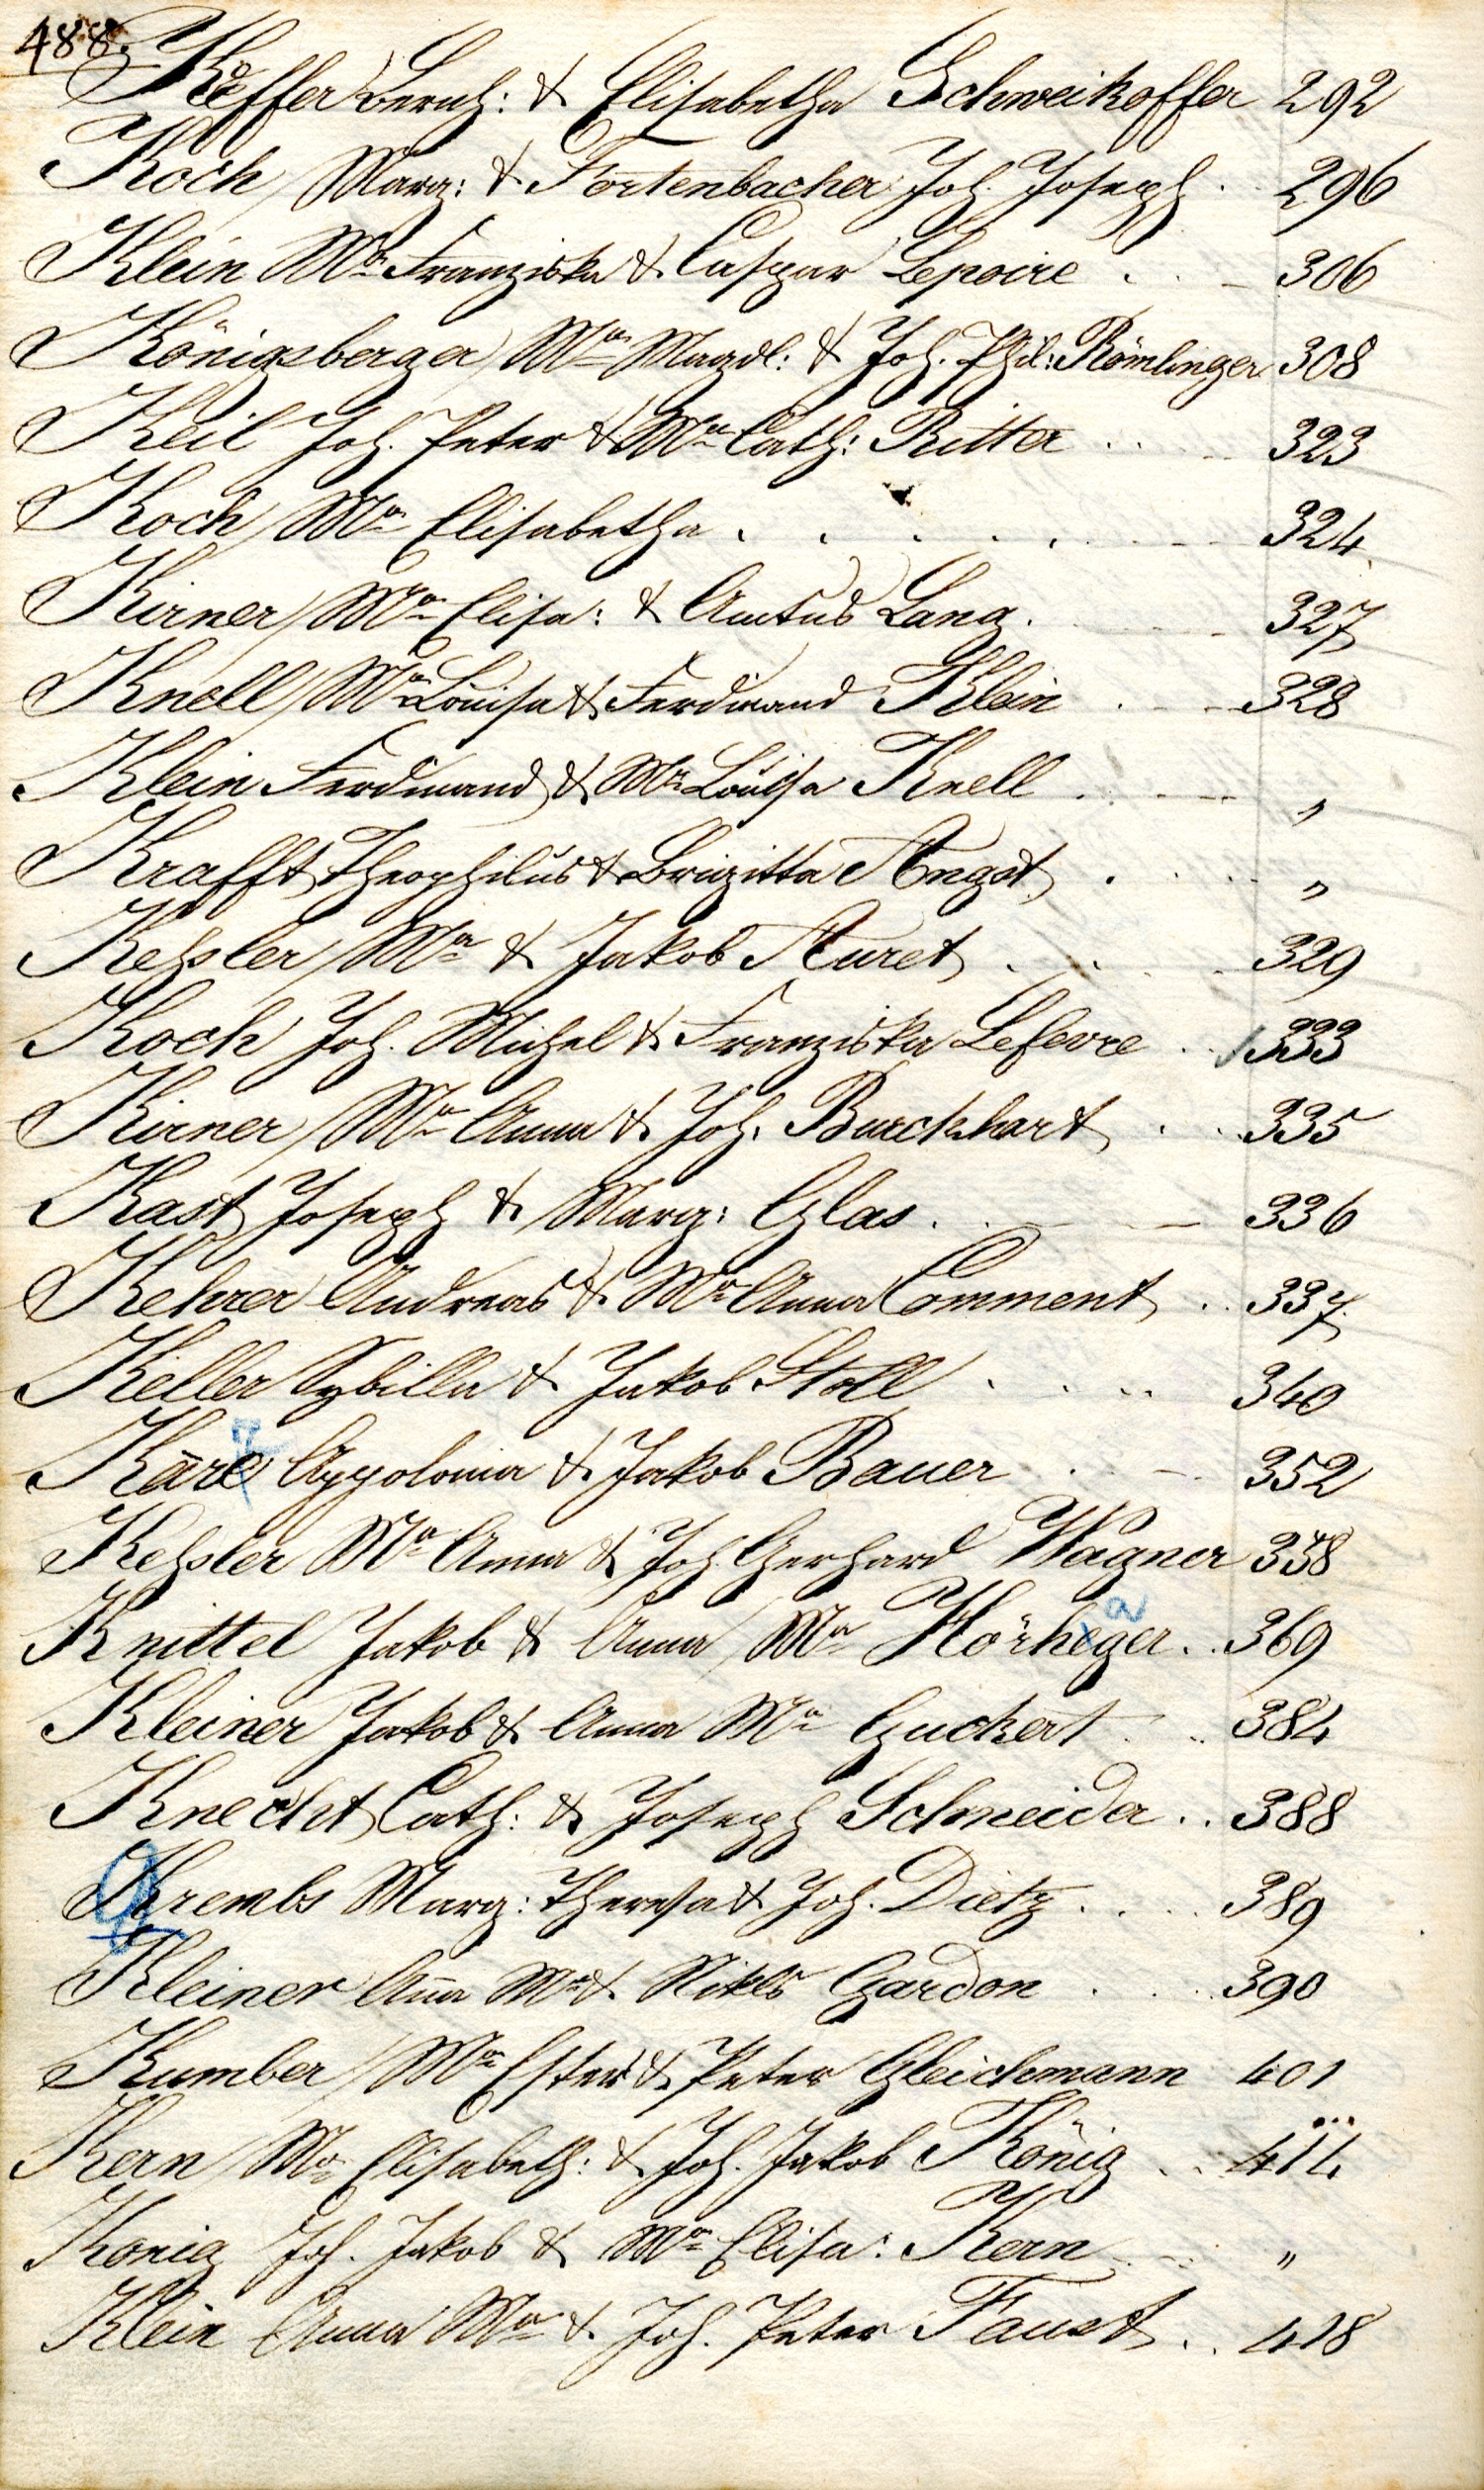 488.
Kieffer Bernh: & Elisabetha Schweikoffer 292
Koch Marg: & Fortenbacher Joh. Joseph . 296
Klein Mª Franziska & Caspar Lepoire . . 306
Königsberger Mª Magdl: & Joh. Phil: Römlinger 308
Keil Joh. Peter & Mª Cath: Ritter . . 323
Koch Mª Elisabetha . . . . . . 324
Kirner Mª Elisa: & Amtus Lang . 327
Knell Mª Louisa & Ferdinand Klein . 328
Klein Ferdinand & Mª Louisa Knell . . „
Krafft Theophilus & Brigitta Angst . . „
Keßler Mª & Jakob Auret . . . 329
Koch Joh. Michel & Franziska Lefevre . 333
Kirner Mª Anna & Joh. Burckhart . . 335
Kast Joseph & Marg: Glas . . 336
Kehrer Andreas & Mª Anna Comment . . 337
Keller Sybilla & Jakob Stoll . . . 340
Käre Appolonia & Jakob Bauer . . 352
Keßler Mª Anna & Joh. Gerhard Wagner 358
Knittel Jakob & Anna Mª Hörheger . . 369
a
Kleiner Jakob & Anna Mª Guckert . . 384
Knecht Cath: & Joseph Schneider . . 388
Krembs Marg: Theresa & Joh. Dietz . . . 389
Kleiner Aña Mª & Nikls Gardon . . 390
Kumber Mª Ester & Peter Gleichmann 401
Kern Mª Elisabeth: & Joh. Jakob König . . 414
Konig Joh. Jakob & Mª Elisa: Kern . „
Klein Anna Mª & Joh. Peter Faust . . 418